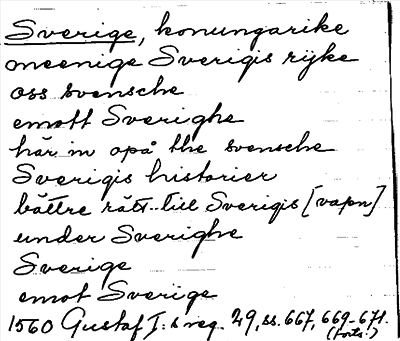 Sverige, konungarike
meenige Sverigis rijke
oss svensche
emott Sverighe
här in opå the svensche
Sverigis historier
bättre rätt till Sverigis [vapn]
under Sverighe
Sverige
emot Sverige
1560 Gustaf I:s reg. 29, ss. 667, 669-671.
(forts.)